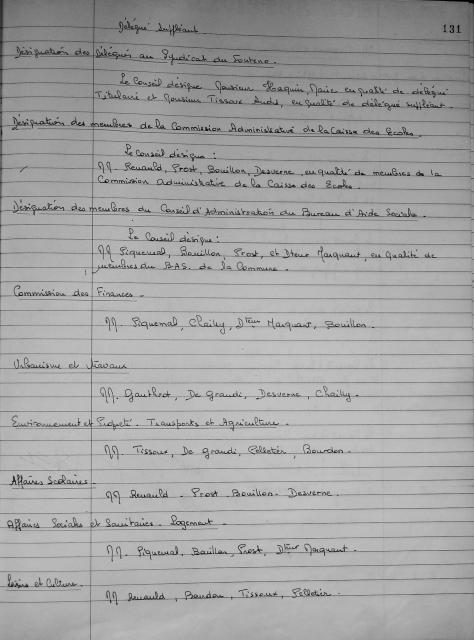 131
Délégué Suppléant.
Désignation des Délégués au Syndicat du
Le Conseil désigne Monsieur Maire en qualité de délégué
Titulaire et Monsieur Tissoux André, en qualité de délégué suppléant.
Désignation des membres de la Commission Administrative de la Caisse des Ecoles.
Le Conseil désigne :
MM. Renauld, Prost, Bouillon, Desverne, en qualité de membres de la
Commission administrative de la Caisse des Ecoles.
Désignation des membres du Conseil d'Administration du Bureau d'Aide Sociale.
Le Conseil désigne :
MM Piquemal, Bouillon, Prost, et Dteur Marquant, en qualité de
membres du B.A.S. de la Commune.
Commission des Finances.
MM. Piquemal, Chailly, Dteur Marquant, Bouillon.
Urbanisme et travaux
MM. Gauthrot, De Grandi, Desverne, Chailly.
Environnement et Propreté. Transports et Agriculture.
MM. Tissoux, De Grandi, Pelletier, Bourdon.
Affaires Scolaires.
MM Renauld - Prost - Bouillon - Desverne.
Affaires Sociales et Sanitaires. Logement.
MM. Piquemal, Bouillon, Prost, Dteur Marquant.
Loisirs et Culture.
MM Renauld, Bourdon, Tissoux, Pelletier.